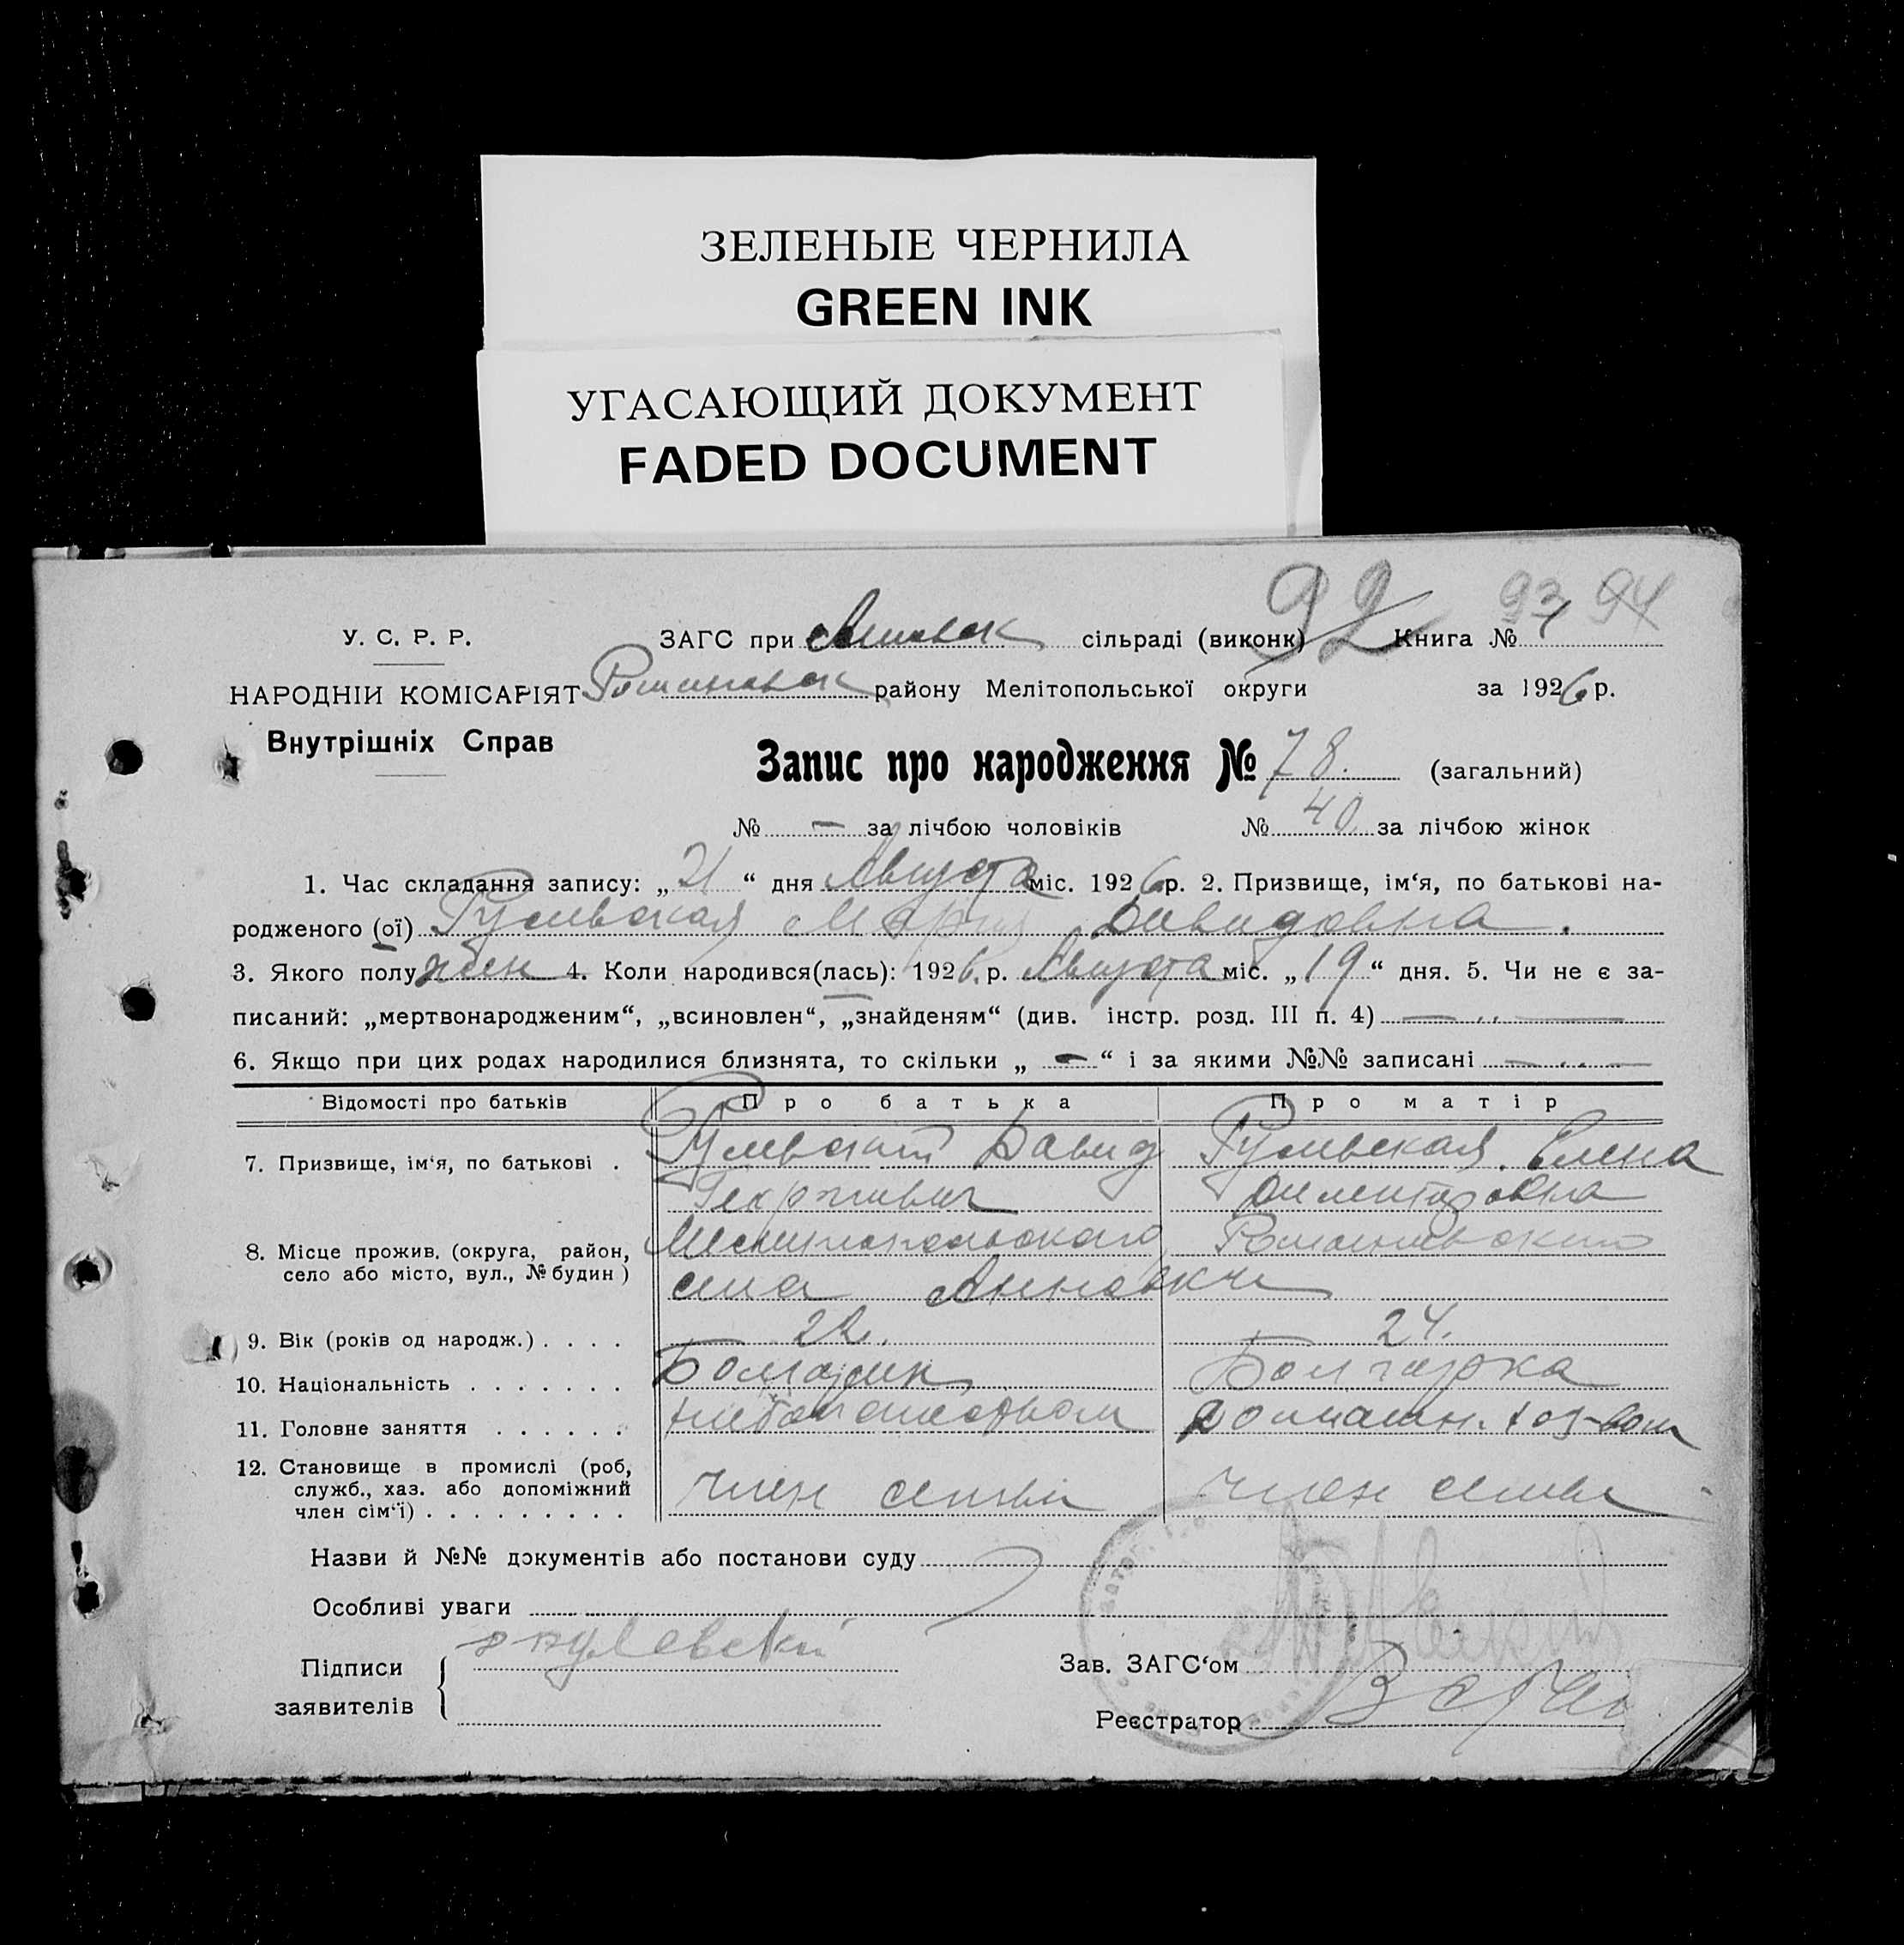 ЗЕЛЕНЫЕ ЧЕРНИЛА
GREEN INK
УГАСАЮЩИЙ ДОКУМЕНТ
FADED DOCUMENT
92 93 94
У. С. Р. Р.
ЗАГС при сільраді (виконк) Книга № 1
НАРОДНІЙ КОМІСАРІЯТ району Мелітопольської округи за 1926 р.
Внутрішніх Справ
Запис про народження № 78. (загальний)
№ — за лічбою чоловіків № 40 за лічбою жінок
1. Час складання запису: „21“ дня Августа міс. 1926 р. 2. Призвище, ім‘я, по батькові на-
родженого (ої) Гулевская Мария Давидовна.
3. Якого полу жен 4. Коли народився(лась): 1926. р. Августа міс. „19“ дня. 5. Чи не є за-
писаний: „мертвонародженим“, „всиновлен“, „знайденям“ (див. інстр. розд. III п. 4) — „ —
6. Якщо при цих родах народилися близнята, то скільки „ — “ і за якими №№ записані — „ —
Відомості про батьків Про батька Про матір
7. Призвище, ім‘я, по батькові . Гулевский Давид Гулевская Елена
8. Місце прожив. (округа, район,
село або місто, вул., № будин) села Анновки
9. Вік (років од народж.) . . . . 22. 24.
10. Національність . . . . . . . Болгарин Болгарка
11. Головне заняття . . . . . . хлебопашеством домашн. хоз-вом
12. Становище в промислі (роб,
служб., хаз. або допоміжний член семьи член семьи
член сім‘ї) . . . . . . . . .
Назви й №№ документів або постанови суду
Особливі уваги
Підписи гулевский Зав. ЗАГС‘ом
заявителів Реєстратор